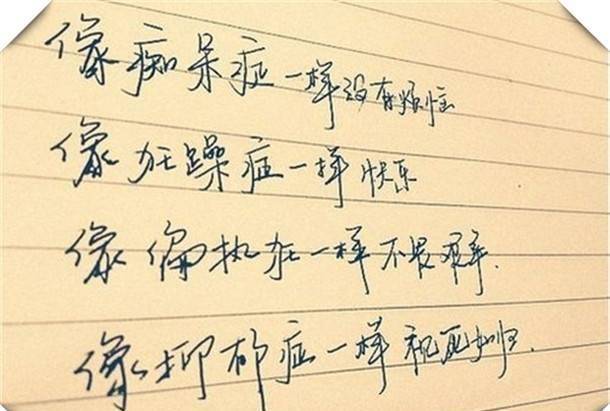 像痴呆症一样没有烦恼
像狂躁症一样快乐
像偏执狂一样不畏艰辛.
像抑郁症一样视死如归.